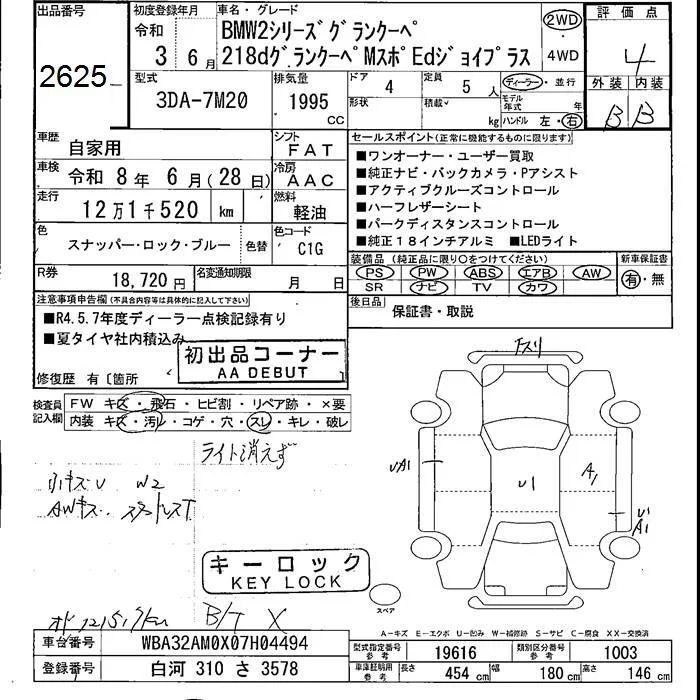 出品番号
2625
初度登録年月
令和
3 6 月
車名・グレード
BMW2シリーズグランクーペ
218dグランクーペMスポEdジョイプラス
2WD
・
4WD
評価点
4
外装 内装
B B
型式
3DA-7M20
排気量
1995
CC
ドア
4
形状
定員
5 人
積載
kg
ディーラー・並行
モデル
年式
年
ハンドル 左・右
車歴
自家用
シフト
FAT
車検
令和 8 年 6 月(28日)
冷房
AAC
走行
12万1千520 km
燃料
軽油
色
スナッパー・ロック・ブルー
色替
色コード
C1G
R券
18,720 円
名変通知期限
月 日
セールスポイント(正常に機能するものに限ります)
■ワンオーナー・ユーザー買取
■純正ナビ・バックカメラ・Pアシスト
■アクティブクルーズコントロール
■ハーフレザーシート
■パークディスタンスコントロール
■純正18インチアルミ ■LEDライト
装備品 (純正品に限り○をつけてください)
PS PW ABS エアB AW
SR ナビ TV カワ
新車保証書
有・無
後日品
保証書・取説
注意事項申告欄(不具合内容等は具体的に記入して下さい)
■R4.5.7年度ディーラー点検記録有り
■夏タイヤ社内積込み
初出品コーナー
AA DEBUT
修復歴 有〔箇所
検査員
記入欄
FW キズ・飛石・ヒビ割・リペア跡・×要
内装 キズ・汚レ・コゲ・穴・スレ・キレ・破レ
ライト消えず
小キズU W2
AWキズ
キーロック
KEY LOCK
B/T X
UA1
U1
A1
U1
A1
スペア
A-キズ E-エクボ U-凹み W-補修跡 S-サビ C-腐食 XX-交換済
車台番号
WBA32AM0X07H04494
登録番号
白河 310 さ 3578
型式指定番号
参考
19616
類別区分番号
参考
1003
車庫証明用
参考
長さ 454 cm 幅 180 cm 高さ 146 cm